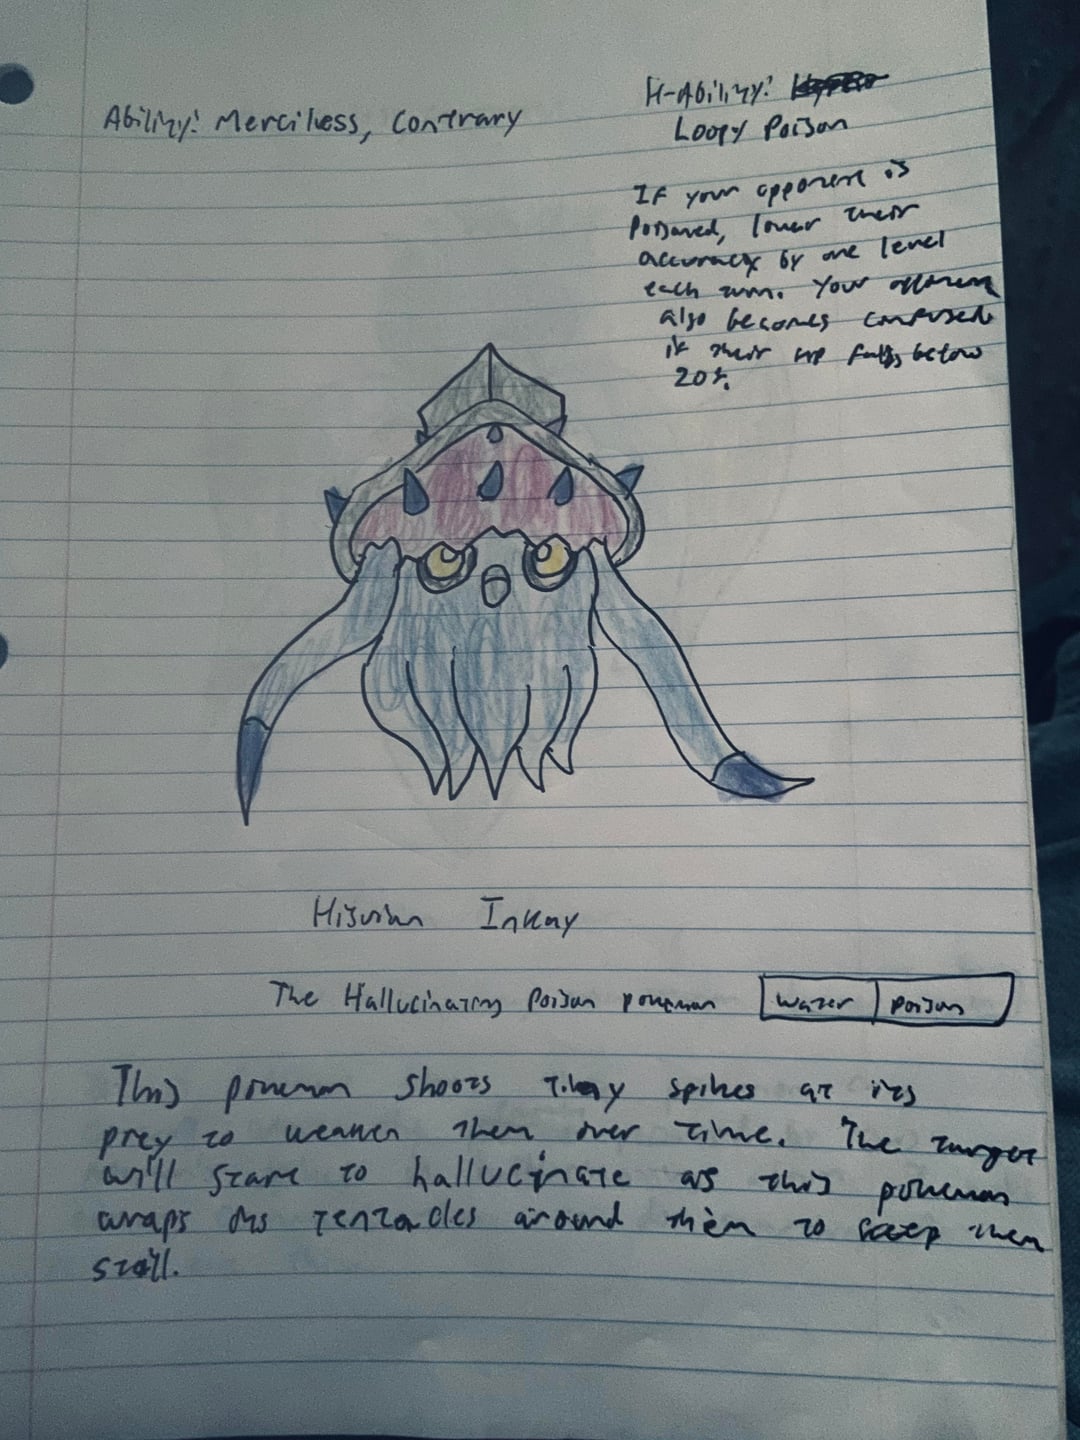 Ability: Merciless, Contrary
H-Ability:
Loopy Poison
If your opponent is
Poisoned, lower their
accuracy by one level
each turn. Your opponent
also becomes confused
if their HP falls below
20%.
Hisuian Inkay
The Hallucinating Poison pokemon
water poison
This pokemon shoots tiny spikes at its
prey to weaken them over time. The target
will start to hallucinate as this pokemon
wraps its tentacles around them to keep them
still.